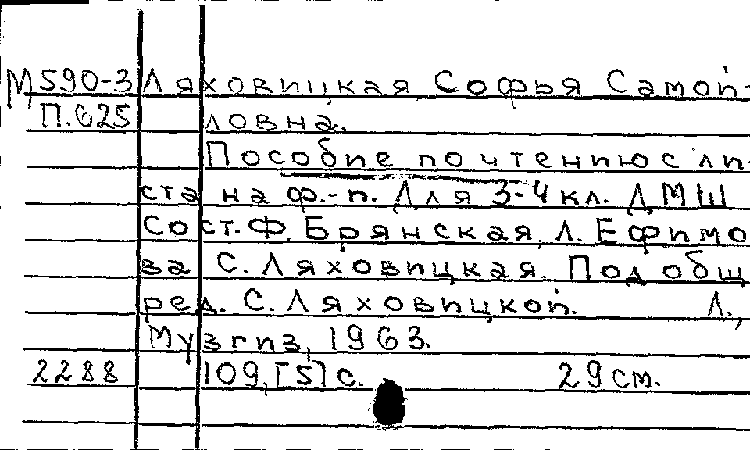 М590-3 Ляховицкая Софья Самой-
П.625 ловна.
Пособие по чтению с ли-
ста на ф.-п. Для 3-4 кл. ДМШ
Сост. Ф. Брянская, Л. Ефимо
ва С. Ляховицкая. Под общ
ред. С. Ляховицкой. Л.,
Музгиз, 1963.
2288 109, [5] с. 29 см.